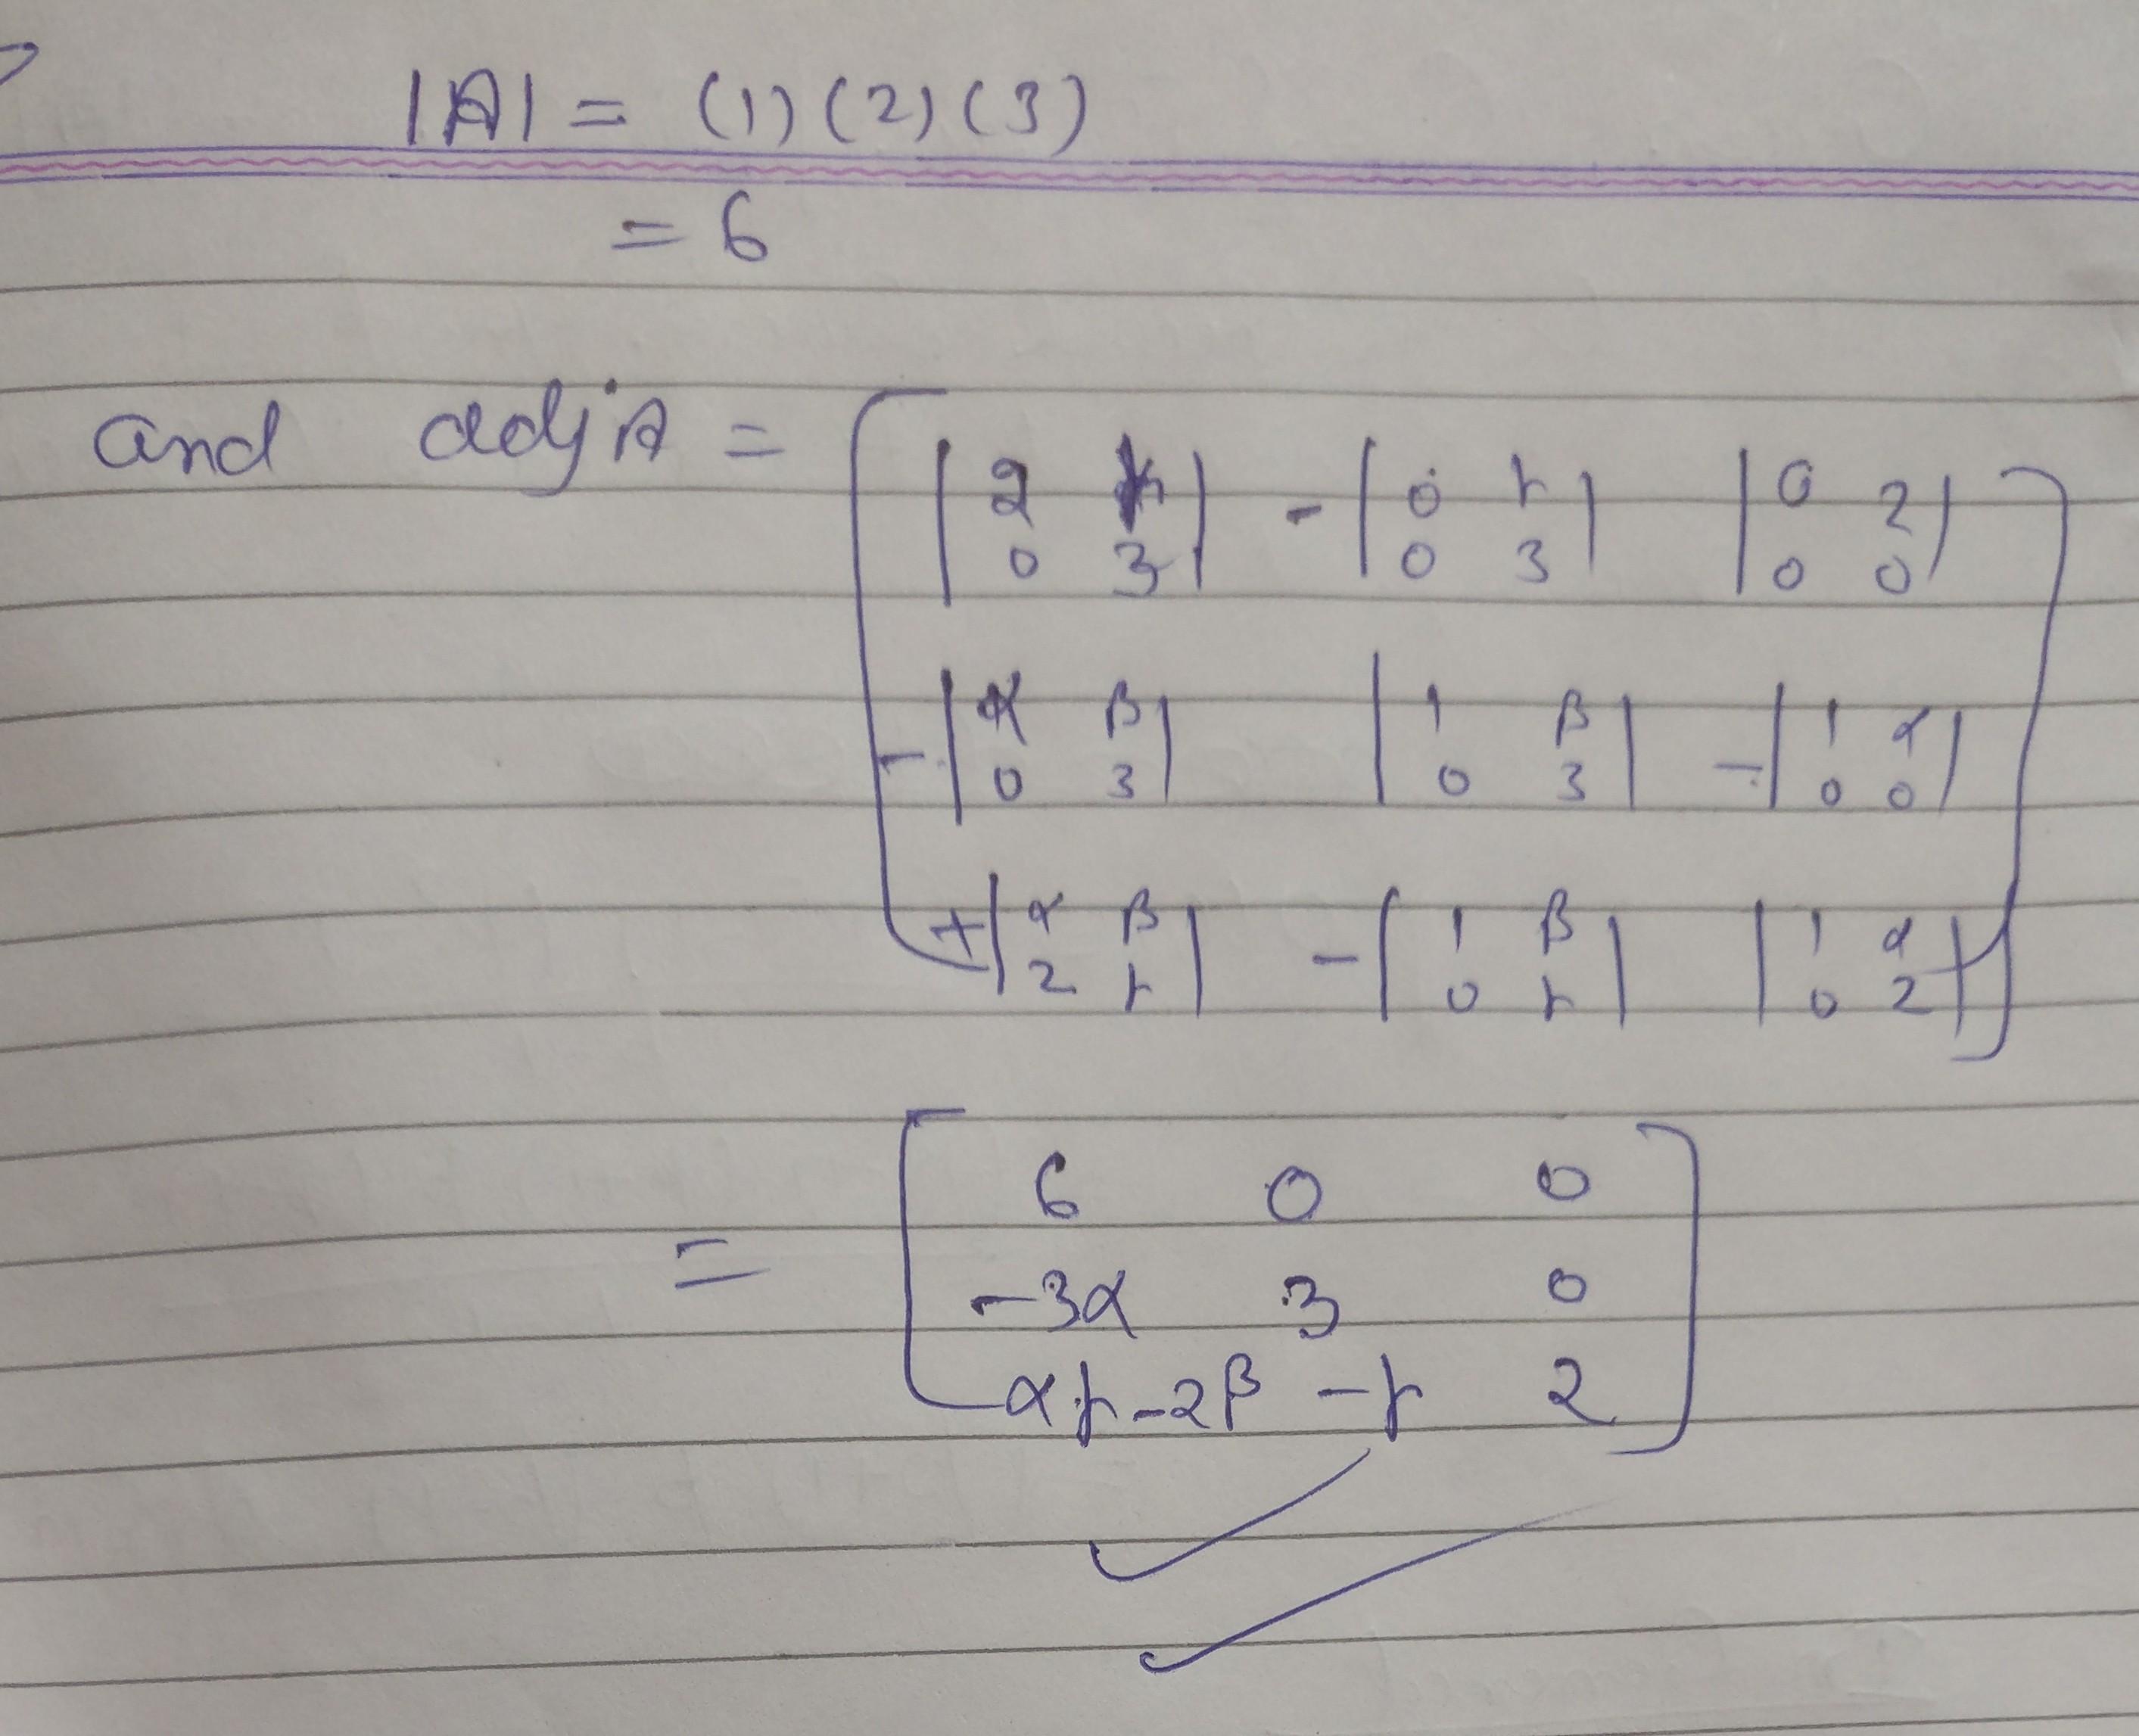 |A| = (1)(2)(3)
= 6
and adj A = [ |2 r; 0 3| -|0 r; 0 3| |0 2; 0 0|
-|α β; 0 3| |1 β; 0 3| -|1 α; 0 0|
+|α β; 2 r| -|1 β; 0 r| |1 α; 0 2| ]
= [ 6 0 0
-3α 3 0
αr-2β -r 2 ]